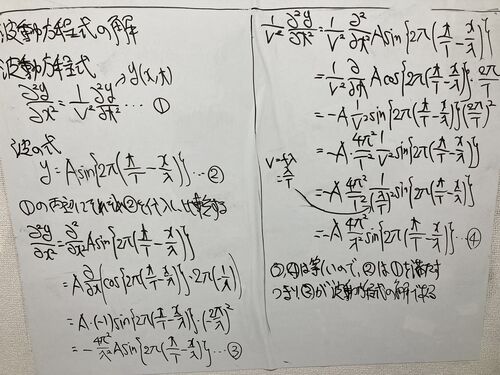 波動方程式の理解
波動方程式 → y(x,t)
∂²y/∂x² = 1/V² ∂²y/∂t² … ①
波の式
y = A sin{2π(t/T - x/λ)} … ②
①の両辺にそれぞれ②を代入し、比較する
∂²y/∂x² = ∂²/∂x² A sin{2π(t/T - x/λ)}
= A ∂/∂x (cos{2π(t/T - x/λ)}·2π(1/λ)
= A·(-1) sin{2π(t/T - x/λ)}·(2π/λ)²
= - 4π²/λ² A sin{2π(t/T - x/λ)} … ③
1/V² ∂²y/∂t² = 1/V² ∂²/∂t² A sin{2π(t/T - x/λ)}
= 1/V² ∂/∂t A cos{2π(t/T - x/λ)}·2π/T
= -A 1/V² sin{2π(t/T - x/λ)}(2π/T)²
= -A· 4π²/T² 1/V² sin{2π(t/T - x/λ)}
V = fλ
= λ/T
= -A 4π²/T² 1/(λ/T)² sin{2π(t/T - x/λ)}
= -A 4π²/λ² sin{2π(t/T - x/λ)} … ④
③,④は等しいので、②は①を満たす
つまり②が波動方程式の解である